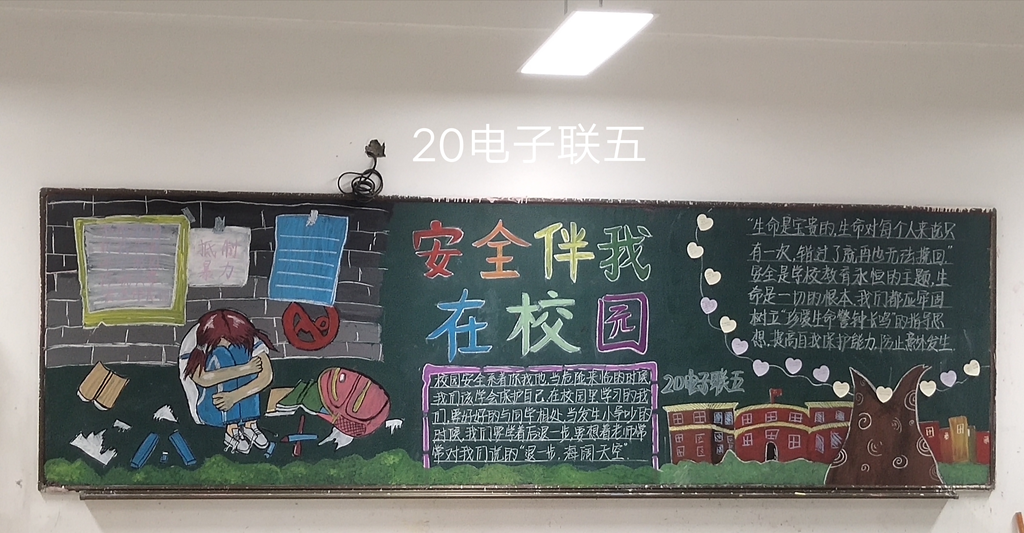 20电子联五
抵制
暴力
安全伴我
在校园
校园安全系着你我他,当危险来临的时候
我们该学会保护自己,在校园里学习的我
们,要好好的与同学相处,当发生小争吵的
时候,我们要学着后退一步,要想着老师常
常对我们说的“退一步,海阔天空”
“生命是宝贵的,生命对每个人来说只
有一次,错过了就再也无法挽回”
安全是学校教育永恒的主题,生
命是一切的根本,我们都应牢固
树立“珍爱生命警钟长鸣”的指导思
想,提高自我保护能力,防止意外发生
20电子联五